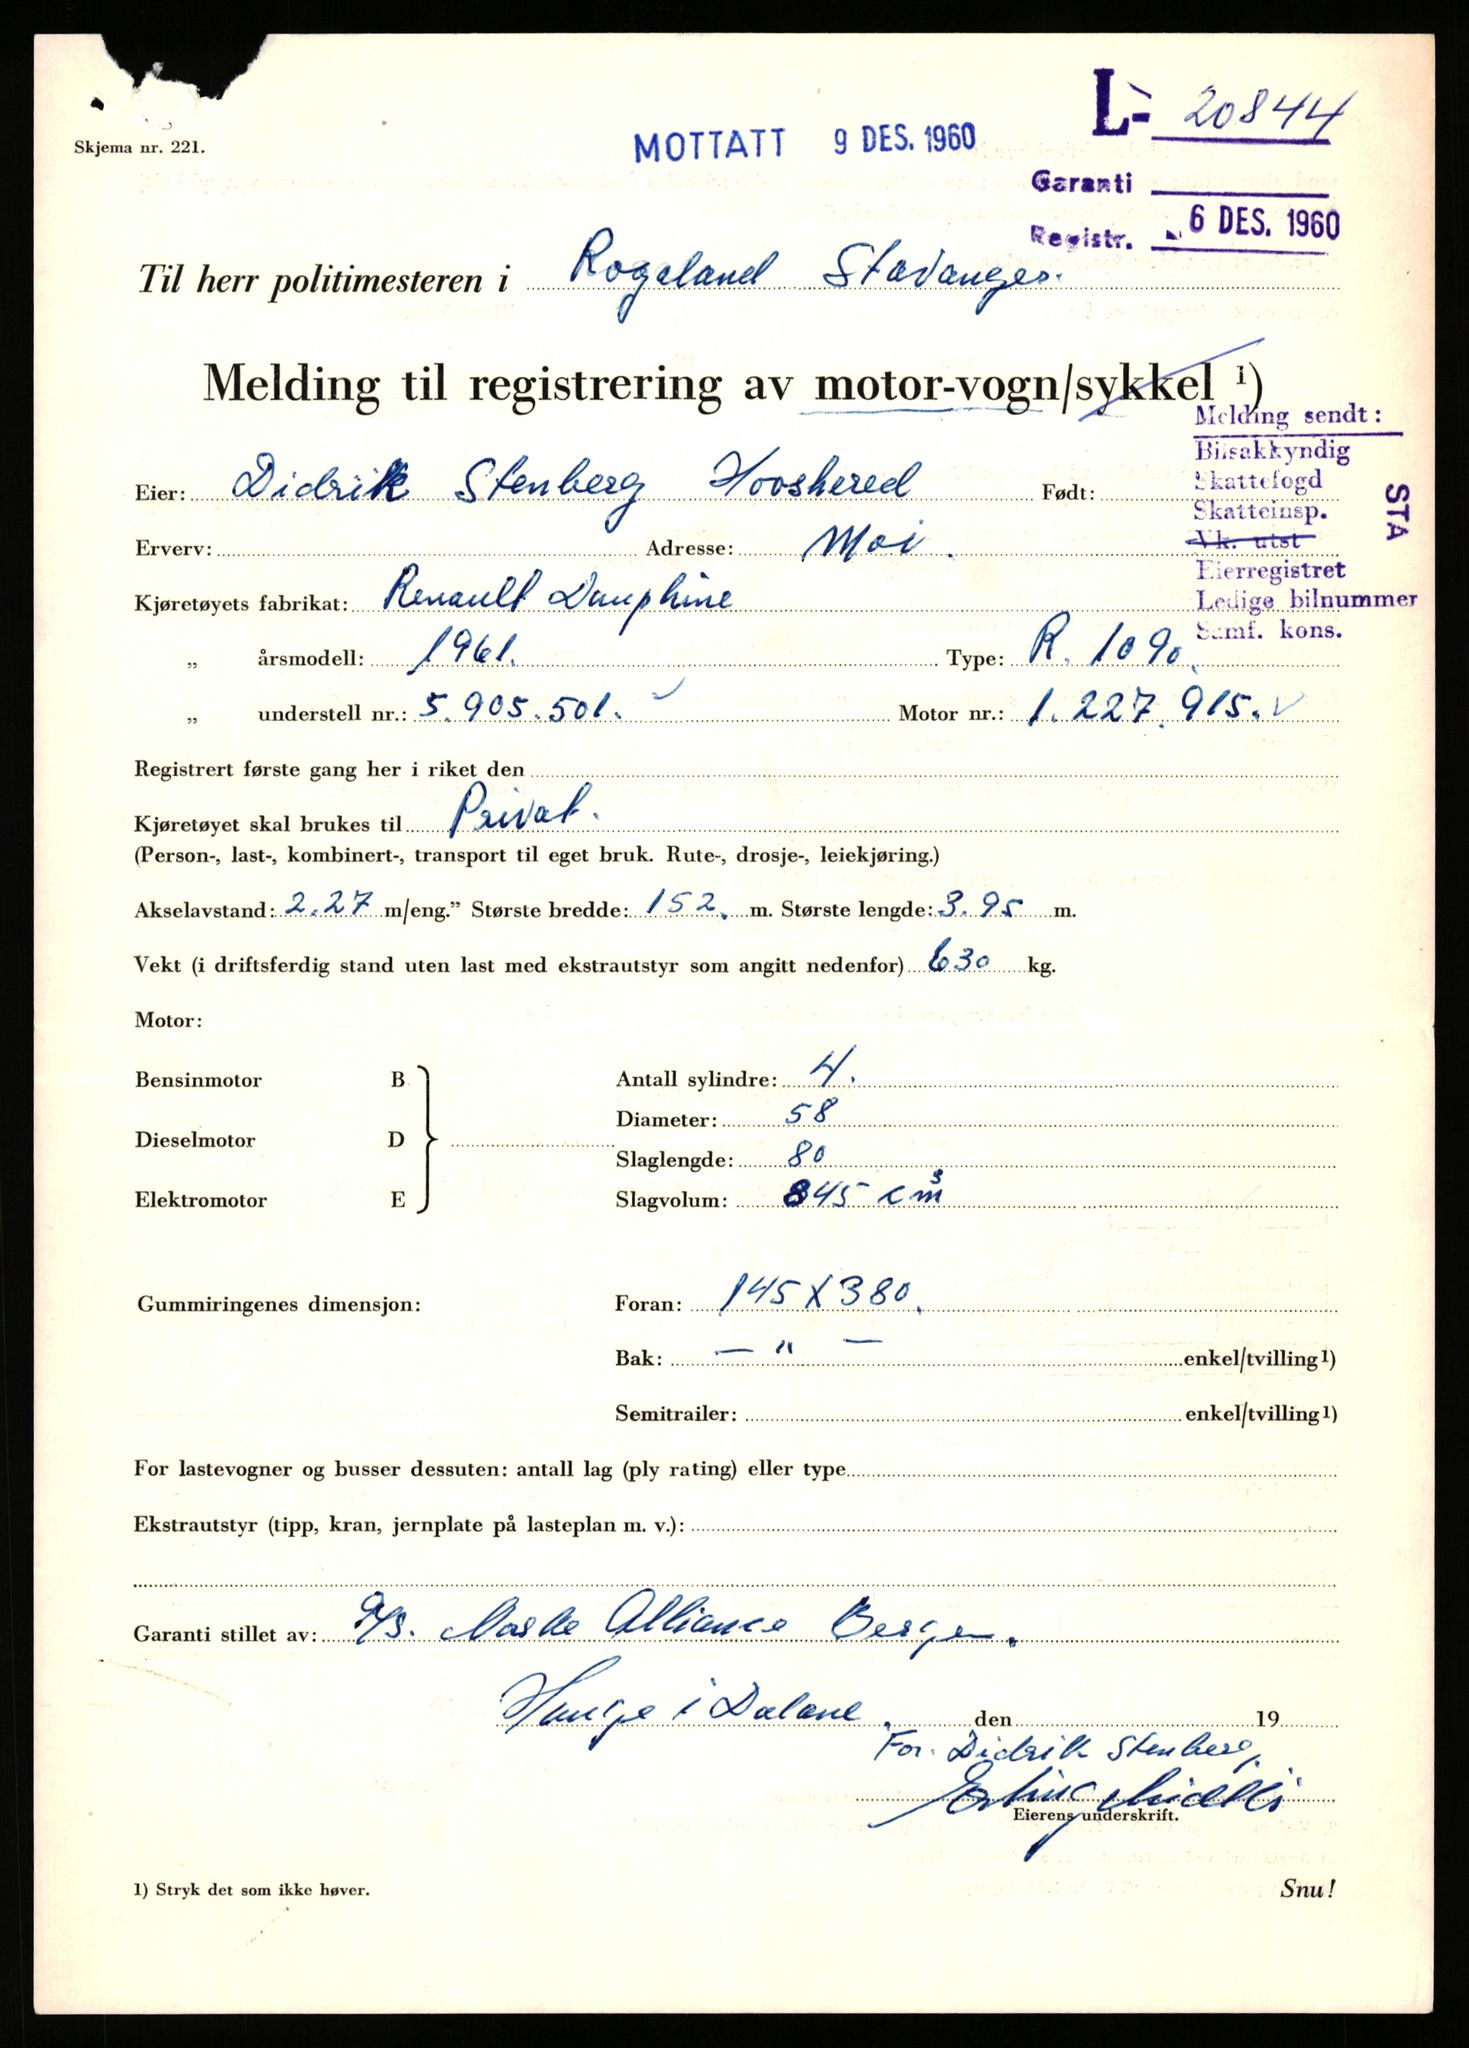 L- 20844
Skjema nr. 221.
MOTTATT 9 DES. 1960
Garanti
Registr. 6 DES. 1960
Til herr politimesteren i Rogaland Stavanger.
Melding til registrering av motor-vogn/sykkel 1)
Melding sendt:
Bilsakkyndig
Skattefogd
Skatteinsp.
Vk. utst
Eierregistret
Ledige bilnummer
Samf. kons.
STA
Eier: Didrik Stenberg Født:
Erverv: Adresse: Moi.
Kjøretøyets fabrikat: Renault Dauphine
„ årsmodell: 1961. Type: R. 1090.
„ understell nr.: 5.905.501. Motor nr.: 1.227.915.
Registrert første gang her i riket den
Kjøretøyet skal brukes til Privat.
(Person-, last-, kombinert-, transport til eget bruk. Rute-, drosje-, leiekjøring.)
Akselavstand: 2.27 m/eng.” Største bredde: 152. m. Største lengde: 3.95 m.
Vekt (i driftsferdig stand uten last med ekstrautstyr som angitt nedenfor) 630 kg.
Motor:
Bensinmotor B Antall sylindre: 4.
Diameter: 58
Dieselmotor D
Slaglengde: 80
Elektromotor E Slagvolum: 845 cm³
Gummiringenes dimensjon: Foran: 145 X 380.
Bak: — " — enkel/tvilling1)
Semitrailer: enkel/tvilling1)
For lastevogner og busser dessuten: antall lag (ply rating) eller type
Ekstrautstyr (tipp, kran, jernplate på lasteplan m. v.):
Garanti stillet av: A/S. Norske Alliance Bergen.
Hauge i Dalane. den 19
For. Didrik Stenberg.
Erling
Eierens underskrift.
1) Stryk det som ikke høver.
Snu!